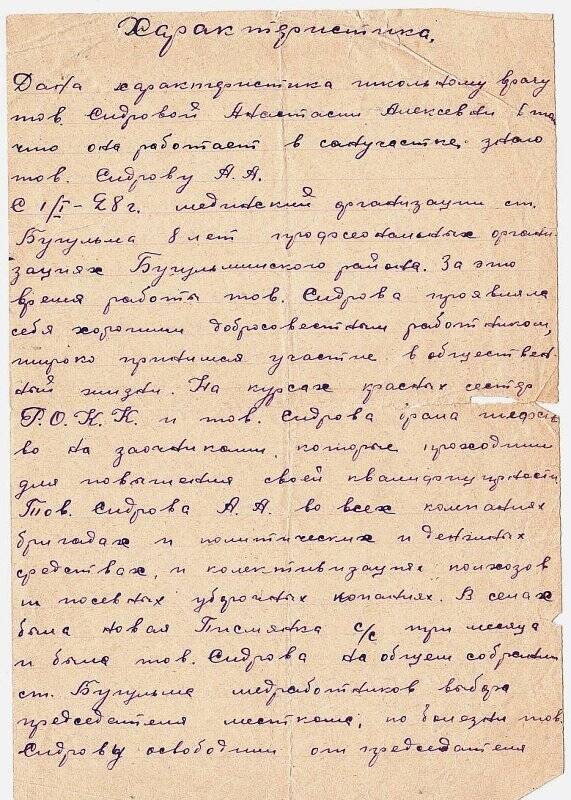 Характеристика.
Дана характеристика школьному врачу
тов. Сидровой Анастасии Алексевни
что она работает в санучастке, знаю
тов. Сидрову А. А.
С 1/I-28 г. мединский организации, ст.
Бугульма 8 лет профсеональных органи-
зациях Бугульминского района. За это
время работы тов. Сидрова проявляла
себя хорошим добросовестным работником,
широко принимая участие в обществен-
ный жизни. На курсах красных сестер
Р.О.К.К. и тов. Сидрова брала шефст
во на заочниками, которые проходили
для повышения своей
Тов. Сидрова А. А. во всех компаниях
бригадах и политических и денжных
средствах, и колективизациях
и посевных уборочных копаниях. В селах
была новая Писмянка с/с три месяца
и была тов. Сидрова на общем собрании
ст. Бугульма медработников выбора
председателя месткома, по болезни тов.
Сидрову освободили от председателя